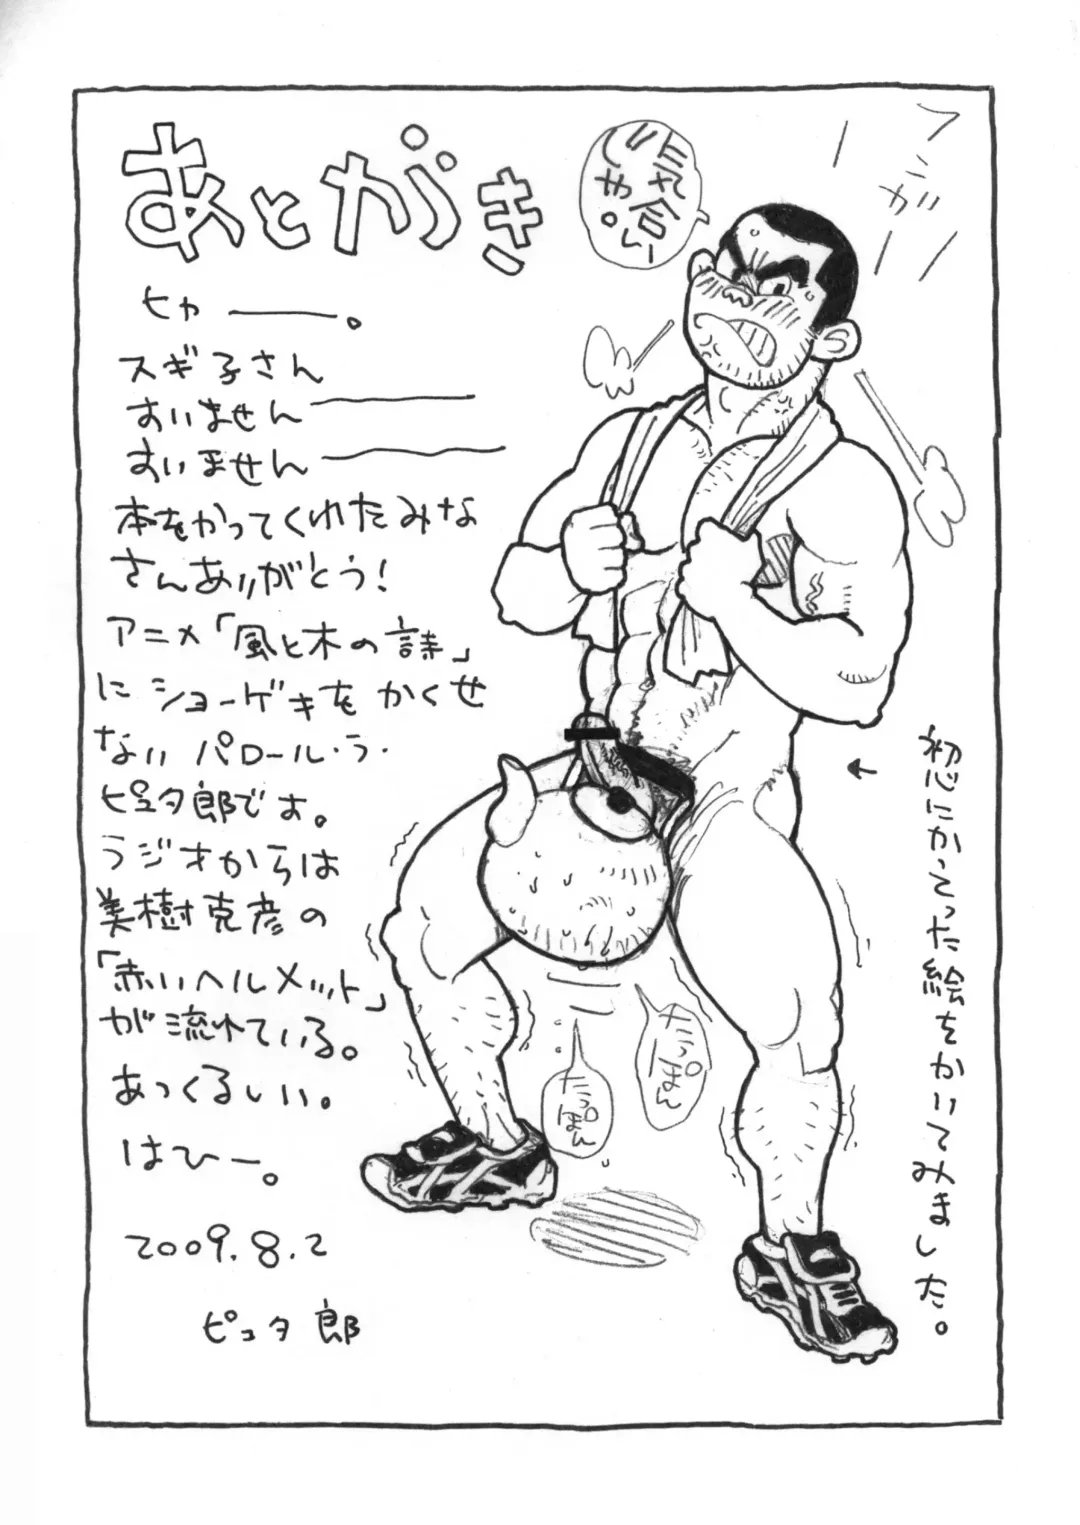 あとがき
気合い
じゃ。
フンガー
ヒャー。
スギ子さん
すいませんー
すいませんー
本をかってくれたみな
さんありがとう!
アニメ「風と木の詩」
にショーゲキをかくせ
ないパロール・う・
ピュタ郎です。
ラジオからは
美樹克彦の
「赤いヘルメット」
が流れている。
あっくるしい。
はひー。
2009.8.2
ピュタ郎
←初心にかえった絵をかいてみました。
だっぽん
だっぽん